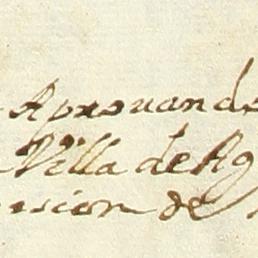 Aprouando
Villa de Ag
sion de